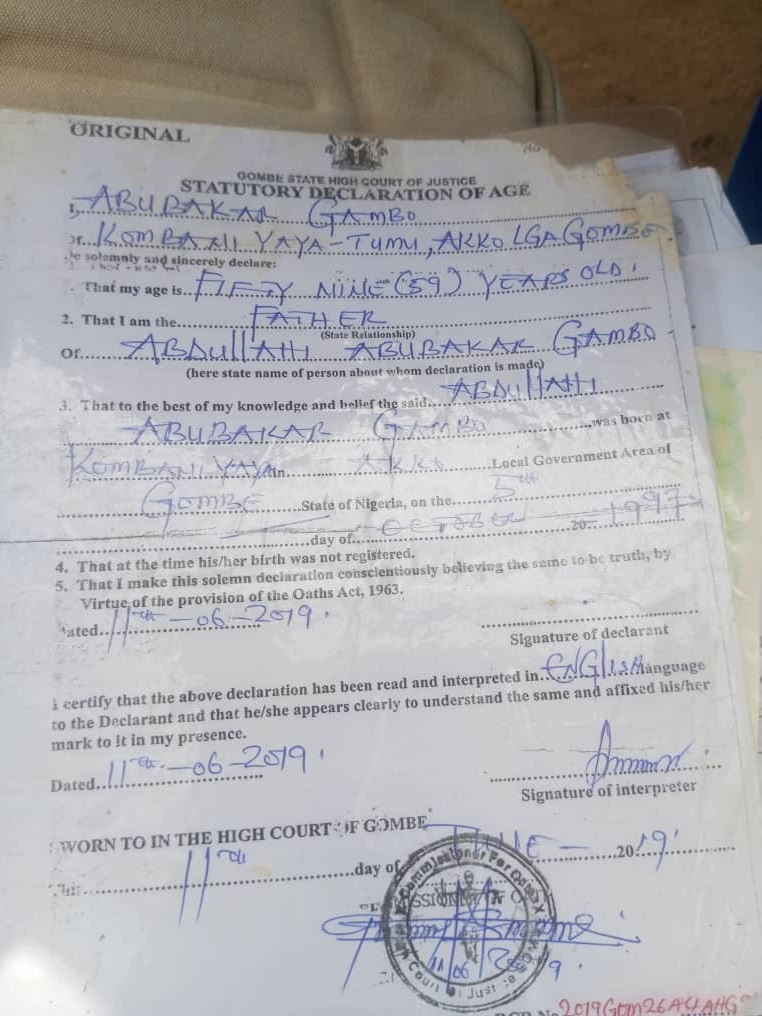 ORIGINAL
No
GOMBE STATE HIGH COURT OF JUSTICE
STATUTORY DECLARATION OF AGE
I, ABUBAKAR GAMBO
Of KOMBANI YAYA-TUMU, AKKO LGA GOMBE
solemnly and sincerely declare:
That my age is FIFTY NINE (59) YEARS OLD.
2. That I am the FATHER
(State Relationship)
Of ABDULLAHI ABUBAKAR GAMBO
(here state name of person about whom declaration is made)
3. That to the best of my knowledge and belief the said ABDULLAHI
ABUBAKAR GAMBO was born at
KOMBANI YAYA in AKKO Local Government Area of
GOMBE State of Nigeria, on the 5th
day of OCTOBER 20 1997
4. That at the time his/her birth was not registered.
5. That I make this solemn declaration conscientiously believing the same to be truth, by
Virtue of the provision of the Oaths Act, 1963.
ated 11th-06-2019.
Signature of declarant
I certify that the above declaration has been read and interpreted in ENGLISH language
to the Declarant and that he/she appears clearly to understand the same and affixed his/her
mark to it in my presence.
Dated 11th-06-2019.
Signature of interpreter
WORN TO IN THE HIGH COURT OF GOMBE
11th day of JUNE 2019
Commissioner For
11 06 2019.
2019GOM26A4AHG